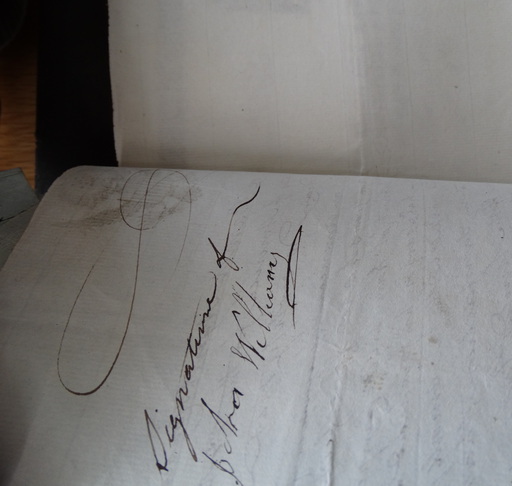 Signature of
John Williams